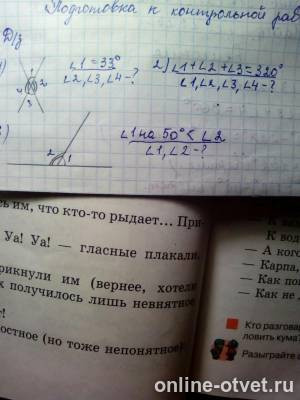 Подготовка к контрольной раб
Д/з
1)
∠1=33°
∠2,∠3,∠4-?
1
2
4
3
2) ∠1+∠2+∠3=320°
∠1,∠2,∠3,∠4-?
)
2
1
∠1 на 50° < ∠2
∠1,∠2-?
сь им, что кто-то рыдает... При-
Уа! Уа! — гласные плакали.
рикнули им (вернее, хотели
к получилось лишь невнятное
т!
остное (но тоже непонятное)
К вод
— А ког
— Карпа,
— Как по
— Как не
Кто разговар
ловить кума?
Разыграйте
online-otvet.ru